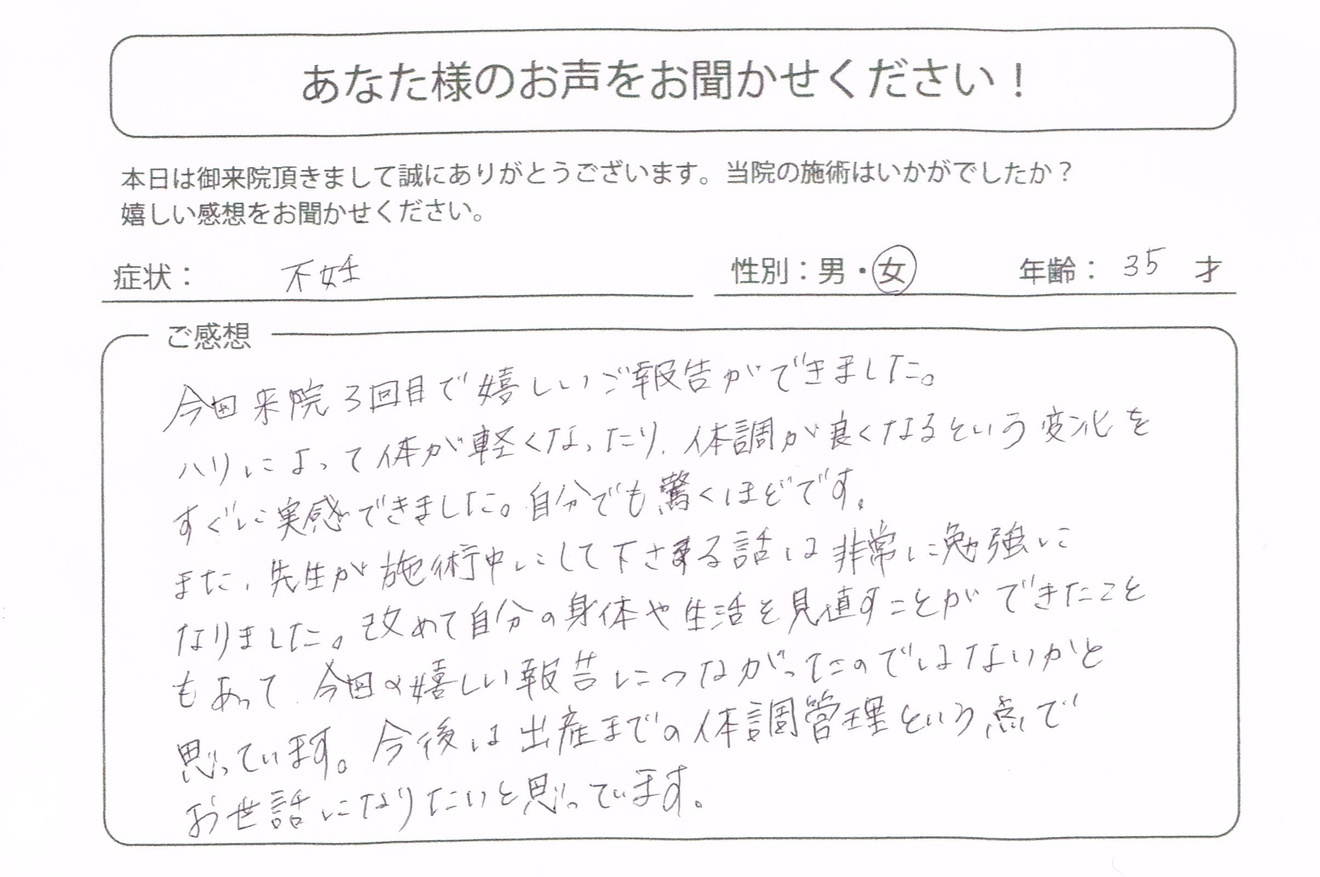 あなた様のお声をお聞かせください！
本日は御来院頂きまして誠にありがとうございます。当院の施術はいかがでしたか？
嬉しい感想をお聞かせください。
症状： 不妊 性別：男・女 年齢： 35 才
ご感想
今回来院3回目で嬉しいご報告ができました。
ハリによって体が軽くなったり、体調が良くなるという変化を
すぐに実感できました。自分でも驚くほどです。
また、先生が施術中にして下さる話は非常に勉強に
なりました。改めて自分の身体や生活を見直すことができたこと
もあって、今回の嬉しい報告につながったのではないかと
思っています。今後は出産までの体調管理という点で
お世話になりたいと思っています。